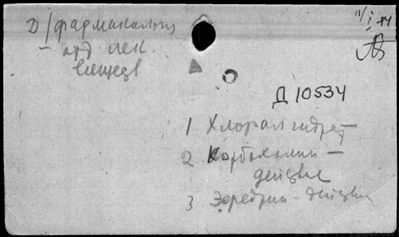 11/I 84
Д/фармакология
– орг лек.
веществ
Д 10534
1 Хлоралгидрат
2 Карбохолин –
действие
3 Эфедрин – действие